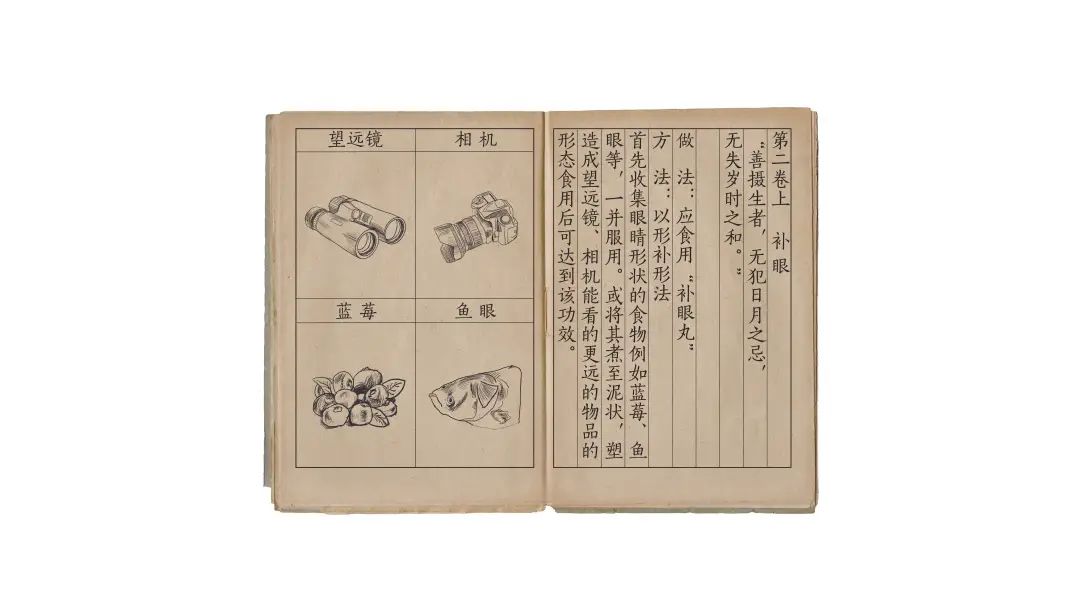 第二卷上 补眼
“善摄生者，无犯日月之忌，
无失岁时之和。”
做 法：应食用“补眼丸”
方 法：以形补形法
首先收集眼睛形状的食物例如蓝莓、鱼
眼等，一并服用。或将其煮至泥状，塑
造成望远镜、相机能看的更远的物品的
形态食用后可达到该功效。
望远镜
相机
蓝莓
鱼眼